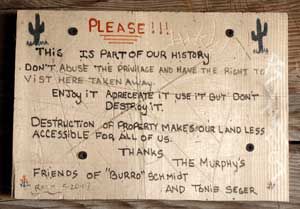 PLEASE!!!
THIS IS PART OF OUR HISTORY
DON'T ABUSE THE PRIVILAGE AND HAVE THE RIGHT TO
VIST HERE TAKEN AWAY.
ENJOY IT APRECEATE IT USE IT BUT DON'T
DESTROY IT.
DESTRUCTION OF PROPERTY MAKES OUR LAND LESS
ACCESSIBLE FOR ALL OF US.
THANKS
THE MURPHY'S
FRIENDS OF "BURRO" SCHMIDT
AND TONIE SEGER